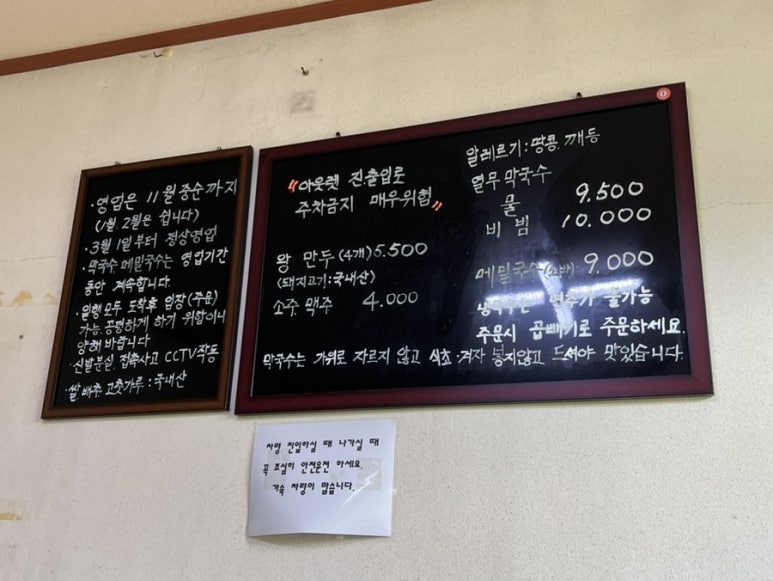 · 영업은 11월 중순까지
(1월 2월은 쉽니다)
· 3월 1일부터 정상영업
· 막국수 메밀국수는 영업기간
동안 계속합니다.
· 일행 모두 도착후 입장(주문)
가능. 공평하게 하기 위함이니
양해 바랍니다
· 신발분실, 접촉사고 CCTV작동
· 쌀, 배추 고춧가루 : 국내산
"아웃렛 진·출입로
주차금지 매우위험"
왕 만두 (4개) 5.500
(돼지고기:국내산)
소주 맥주 4.000
알레르기 : 땅콩. 깨등
열무 막국수
물 9.500
비빔 10.000
메밀국수 9.000
면추가 불가능
주문시 곱빼기로 주문하세요.
막국수는 가위로 자르지 않고 식초·겨자 넣지않고 드셔야 맛있습니다.
차량 진입하실 때 나가실 때
꼭 조심히 안전운전 하세요.
가속 차량이 많습니다.